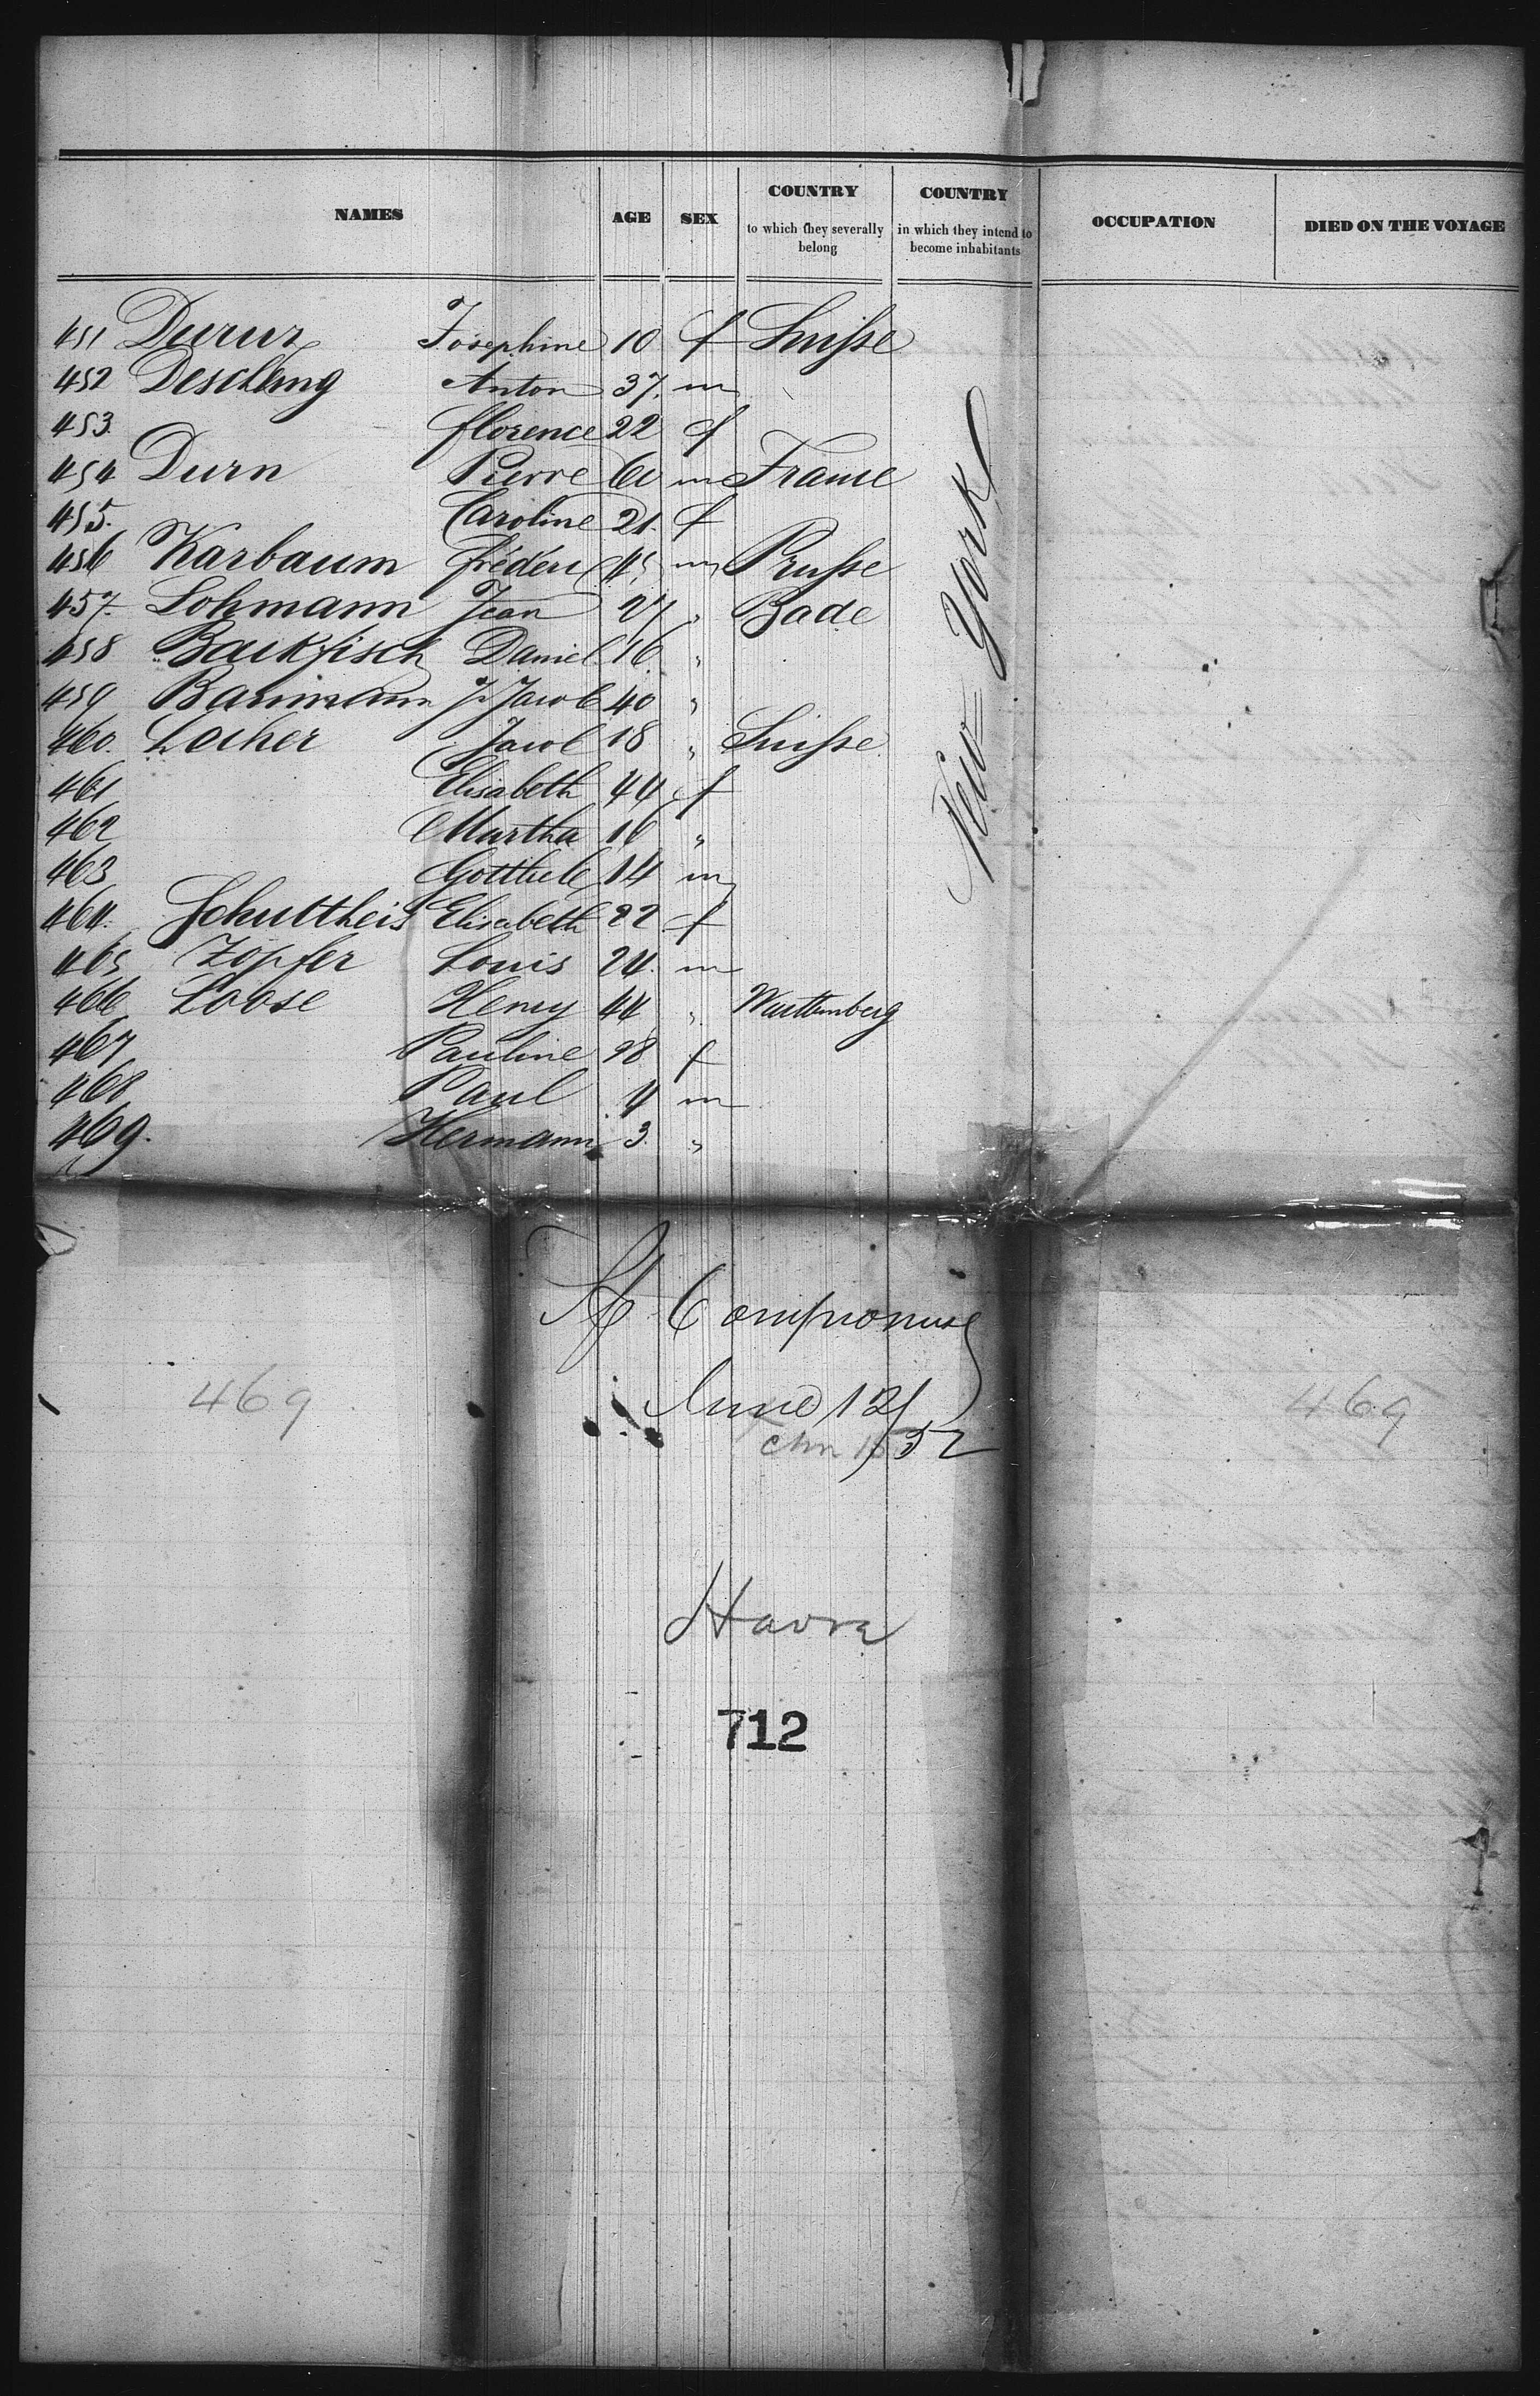 NAMES AGE SEX COUNTRY to which they severally belong COUNTRY in which they intend to become inhabitants OCCUPATION DIED ON THE VOYAGE
451 Duruz Josephine 10 f Suisse
452 Deschlang Anton 37 m
453 florence 22 f
454 Durn Pierre 60 m France
455 Caroline 21 f
456 Karbaum fréderic 45 m Prusse
457 Lohmann Jean 27 " Bade
458 Backfisch Daniel 16 "
459 Baumann J. Jacob 40 "
460 Locher Jacob 18 " Suisse
461 Elisabeth 44 f
462 Martha 16 "
463 Gottlieb 14 m
464 Schultheis Elisabeth 22 f
465 Zopfer Louis 24 m
466 Loose Henry 44 " Wurttemberg
467 Pauline 28 f
468 Paul 4 m
469 Hermann 3 "
New York
Compromise
June 12/52
469
469
Havre
712